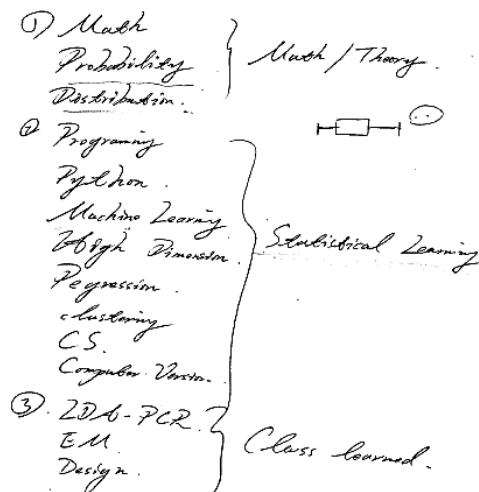 ① Math
Probability
Distribution.
Math / Theory.
② Programing
Python.
Machine Learning
High Dimension.
Regression.
clustering
C S.
Computer Version.
Statistical Learning
③. LDA - PCR.
EM
Design.
Class learned.